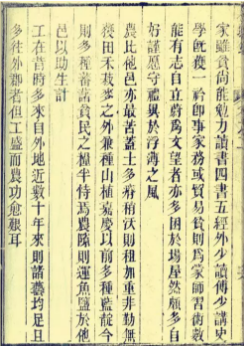 家雖貧尚能勉力讀書四書五經外少讀傳少講史
學旣獲一衿卽事家務或貿易貧則爲蒙師習術數
能有志自立蔚爲文望者亦多困於場屋然頗多自
好謹愿守禮與於浮薄之風
農比他邑亦最苦蓋土多瘠稍沃則租加重非勤無
穫田禾菽麥之外兼種山植嘉慶以前多種藍靛今
則多種番薯貧民之糧半恃焉農隙則運魚鹽於他
邑以助生計
工在昔時多來自外地近數十年來則諸藝均足且
多徃外郡者但工盛而農功愈艱耳